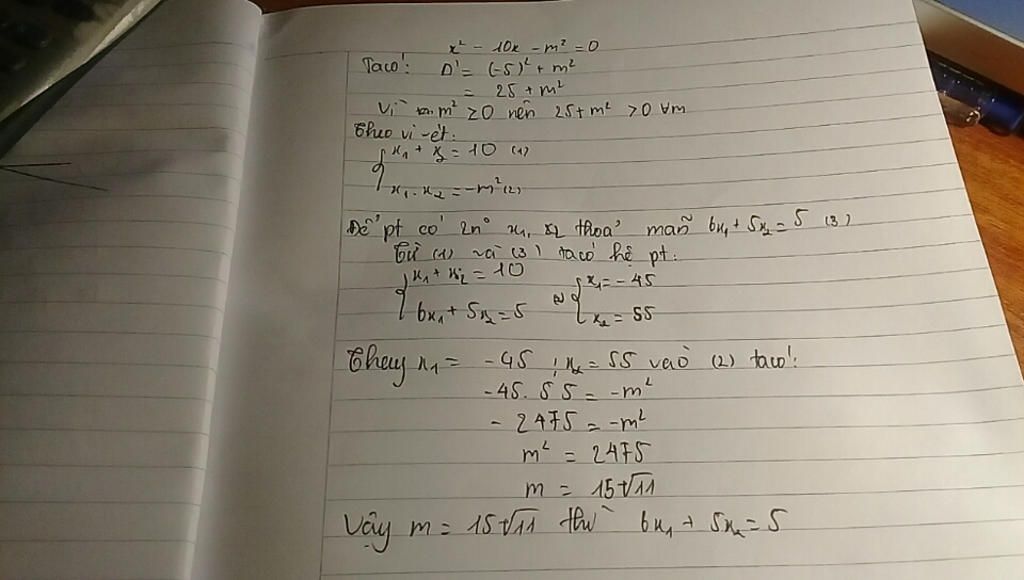 x² - 10x - m² = 0
Ta có: Δ' = (-5)² + m²
= 25 + m²
Vì m² ≥ 0 nên 25 + m² > 0 ∀m
Theo vi-ét:
{ x₁ + x₂ = 10 (1)
x₁ . x₂ = -m² (2)
Để pt có 2n⁰ x₁, x₂ thoả mãn 6x₁ + 5x₂ = 5 (3)
Từ (1) và (3) ta có hệ pt:
{ x₁ + x₂ = 10 ⇔ { x₁ = -45
6x₁ + 5x₂ = 5 x₂ = 55
Thay x₁ = -45 ; x₂ = 55 vào (2) ta có:
-45. 55 = -m²
- 2475 = -m²
m² = 2475
m = 15√11
Vậy m = 15√11 thì 6x₁ + 5x₂ = 5